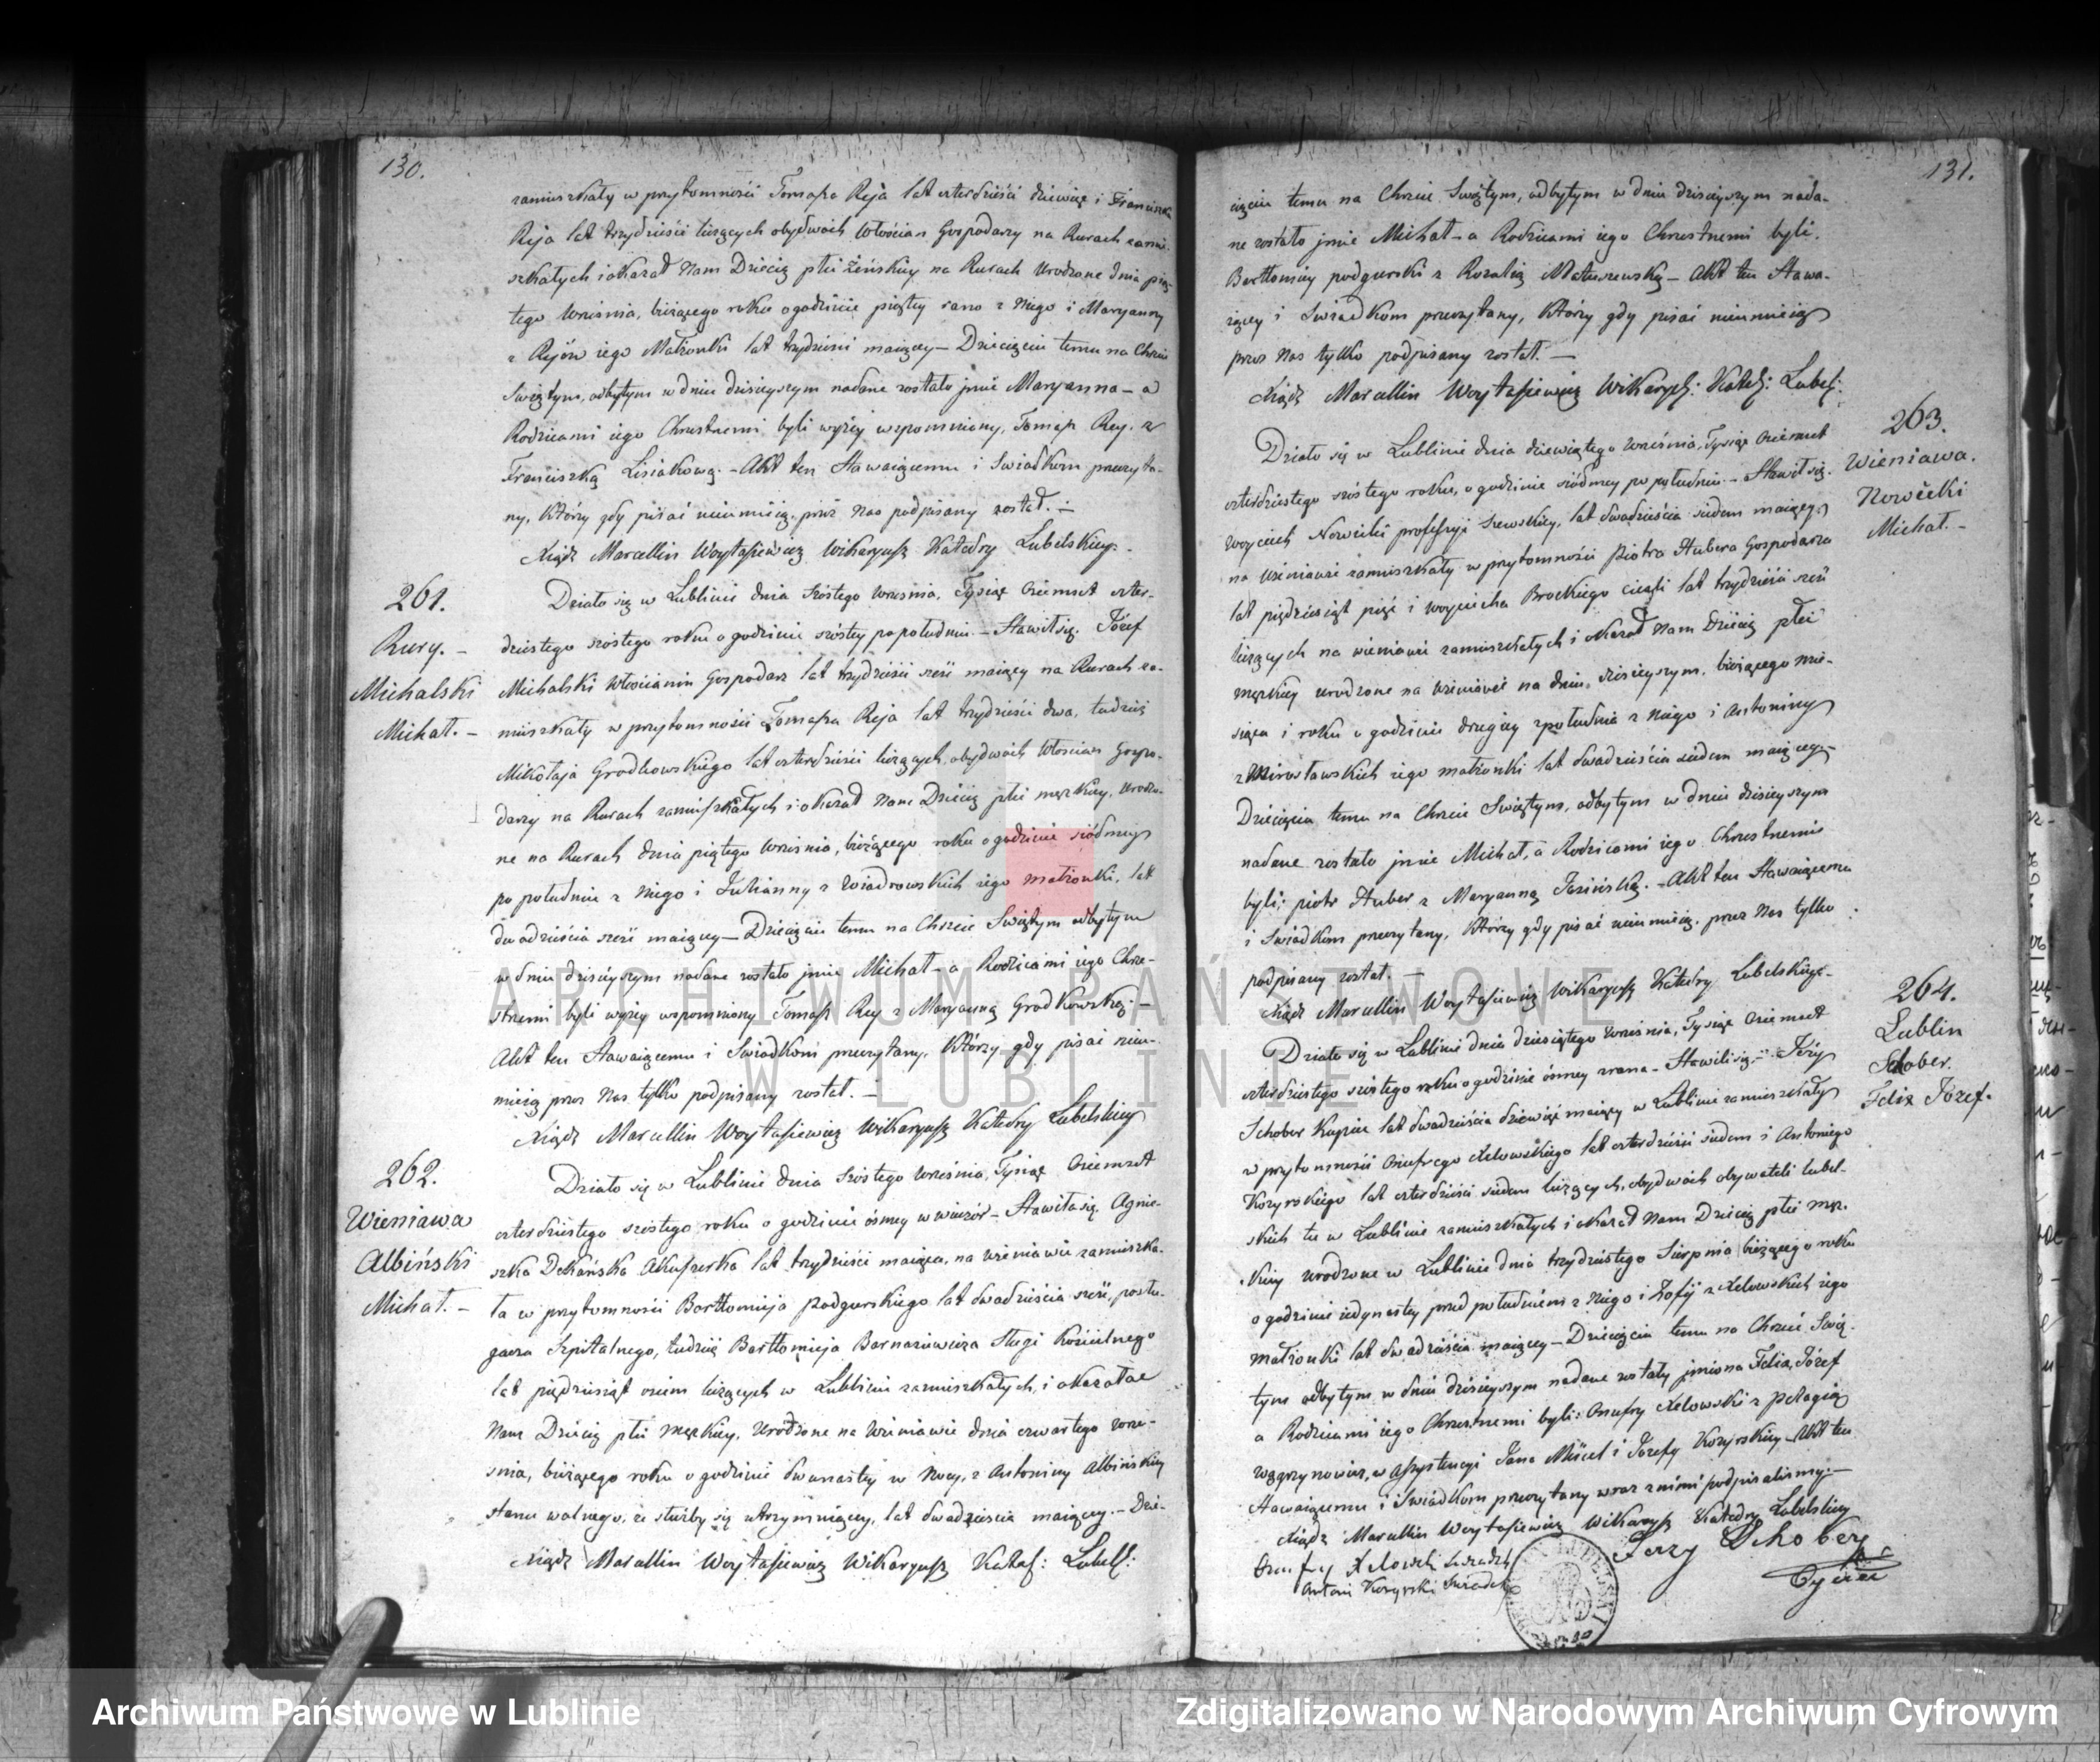 130.
zamieszkały w przytomności Tomasza Reja lat czterdzieści dziewięć i Franciszka
Reja lat trzydzieści liczących obydwóch Włościan Gospodarzy na Rurach zamie-
szkałych i okazał Nam Dziecię płci żeńskiey na Rurach urodzone dnia pią-
tego Września, bieżącego roku o godzinie piątey rano z Niego i Maryanny
z Rejów iego Małżonki lat trzydzieści maiącey – Dziecięciu temu na Chrzcie
Świętym, odbytym w dniu dzisieyszym nadane zostało jmie Maryanna – a
Rodzicami iego Chrzestnemi byli wyżey wspomniony, Tomasz Rey, z
Franciszką Lisiakową. – Akt ten Stawaiącemu i Świadkom przeczyta-
ny, Którzy gdy pisać nieumieią, przez Nas podpisany został. –
Xiądz Marcellin Woytasiewicz Wikaryusz Katedry Lubelskiey. –
261.
Rury. –
Michalski
Michał. –
Działo się w Lublinie dnia Szóstego Września, Tysiąc Ośmset czter-
dziestego szóstego roku o godzinie szóstey po południu. – Stawił się Józef
Michalski Włościanin Gospodarz lat trzydzieści sześć maiący na Rurach za-
mieszkały w przytomności Tomasza Reja lat trzydzieści dwa, tudzież
Mikołaja Grodkowskiego lat czterdzieści liczących, obydwóch Włościan Gospo-
darzy na Rurach zamieszkałych i okazał Nam Dziecię płci męzkiey, urodzo-
ne na Rurach dnia piątego Września, bieżącego roku o godzinie siódmey
po południu z Niego i Julianny z Wiadrowskich iego małżonki, lat
dwadzieścia sześć maiącey – Dziecięciu temu na Chrzcie Świętym odbytym
w dniu dzisieyszym nadane zostało jmie Michał – a Rodzicami iego Chrze-
stnemi byli wyżey wspomniony Tomasz Rey z Maryanną Grodkowską. –
Akt ten Stawaiącemu i Świadkom przeczytany, Którzy gdy pisać nieu-
mieią przez Nas tylko podpisany został. –
Xiądz Marcellin Woytasiewicz Wikaryusz Katedry Lubelskiey
262.
Wieniawa
Albiński
Michał. –
Działo się w Lublinie dnia Szóstego Września, Tysiąc Ośmset
czterdziestego szóstego roku o godzinie ósmey w wieczór – Stawiła się Agnie-
szka Dekańska Akuszerka lat trzydzieści maiąca, na Wieniawie zamieszka-
ła w przytomności Bartłomieja Podgurskiego lat dwadzieścia sześć, posłu-
gacza Szpitalnego, tudzież Bartłomieja Barnasiewicza Sługi Kościelnego
lat pięćdziesiąt ośm liczących w Lublinie zamieszkałych, i okazała
Nam Dziecię płci męzkiey, urodzone na Wieniawie dnia czwartego wrze-
śnia, bieżącego roku o godzinie dwunastey w Nocy, z Antoniny Albińskiey
stanu wolnego, ze służby się utrzymuiącey, lat dwadzieścia maiącey. – Dzie-
Xiądz Marcellin Woytasiewicz Wikaryusz Kated: Lubels:
131.
cięciu temu na Chrzcie Świętym, odbytym w dniu dzisieyszym nada-
ne zostało jmie Michał – a Rodzicami iego Chrzestnemi byli.
Bartłomiey podgurski z Rozalią Matuszewską – Akt ten Stawa-
iącey i Świadkom przeczytany, Którzy gdy pisać nieumieią
przez Nas tylko podpisany został. –
Xiądz Marcellin Woytasiewicz Wikary: Kated: Lubel:
263.
Wieniawa.
Nowicki
Michał. –
Działo się w Lublinie dnia dziewiątego Września, Tysiąc Ośmset
czterdziestego szóstego roku, o godzinie siódmey po południu. – Stawił się
Woyciech Nowicki professyi Szewskiey, lat dwadzieścia siedem maiący
na Wieniawie zamieszkały w przytomności Piotra Hubera Gospodarza
lat pięćdziesiąt pięć i Woyciecha Brockiego Cieśli lat trzydzieści sześć
liczących na wieniawie zamieszkałych i okazał Nam Dziecię płci
męzkiey urodzone na Wieniawie na dniu dzisieyszym, bieżącego mie-
siąca i roku o godzinie drugiey z południa z Niego i Antoniny
z Mirosławskich iego małżonki lat dwadzieścia siedem maiącey –
Dziecięciu temu na Chrzcie Świętym, odbytym w dniu dzisieyszym
nadane zostało jmie Michał, a Rodzicami iego Chrzestnemi
byli: piotr Huber z Maryanną Jasińską. – Akt ten Stawaiącemu
i Świadkom przeczytany, Którzy gdy pisać nieumieią, przez Nas tylko
podpisany został. –
Xiądz Marcellin Woytasiewicz Wikaryusz Katedry Lubelskiey –
264.
Lublin
Schober.
Felix Józef.
Działo się w Lublinie dnia dziesiątego Września, Tysiąc Ośmset
czterdziestego szóstego roku o godzinie ósmey z rana – Stawił się. – Jerzy
Schober Kupiec lat dwadzieścia dziewięć maiący w Lublinie zamieszkały
w przytomności Onufrego Xelowskiego lat czterdzieści siedem i Antoniego
Kozyrskiego lat czterdzieści siedem liczących, obydwóch obywateli lubel-
skich tu w Lublinie zamieszkałych i okazał Nam Dziecię płci męz-
kiey urodzone w Lublinie dnia trzydziestego Sierpnia bieżącego roku
o godzinie iedynastey przed południem z Niego i Zofij z Xelowskich iego
małżonki lat dwadzieścia maiącey – Dziecięciu temu na Chrzcie Świę-
tym odbytym w dniu dzisieyszym nadane zostały jmiona Felix, Józef
a Rodzicami iego Chrzestnemi byli: Onufry Xelowski z pelagią
Węgrzynowicz, w Assystencyi Jana Mücel i Józefy Kozyrskiey – Akt ten
Stawaiącemu i Świadkom przeczytany wraz z nimi podpisaliśmy. –
Xiądz Marcellin Woytasiewicz Wikaryusz Katedry Lubelskiey
Onufry Xelowski Swiadek
Jerzy Schober
Antoni Kozyrski Swiadek
Oyciec
ARCHIWUM PAŃSTWOWE
W LUBLINIE
Archiwum Państwowe w Lublinie
Zdigitalizowano w Narodowym Archiwum Cyfrowym